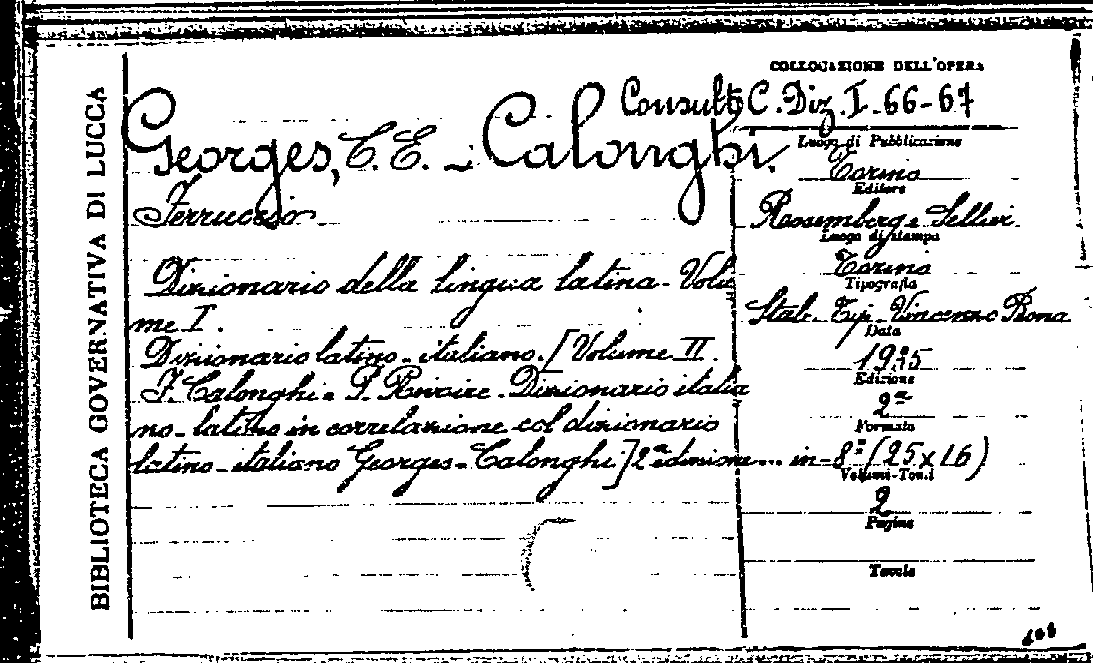 BIBLIOTECA GOVERNATIVA DI LUCCA
COLLOCAZIONE DELL'OPERA
Consult. C. Diz. I. 66-67
Georges, C. E. - Calonghi.
Ferruccio.
Dizionario della lingua latina - Volu
me I.
Dizionario latino - italiano. [Volume II.
F. Calonghi e P. Rivoire - Dizionario italia
no - latino in correlazione col dizionario
latino - italiano Georges - Calonghi.] 2ª edizione... in-8º (25x16)
Luogo di Pubblicazione
Torino
Editore
Rosemberg e Sellier.
Luogo di stampa
Torino
Tipografia
Stab. Tip. Vincenzo Bona
Data
Edizione
2ª
Formato
Volumi-Tomi
2
Pagine
Tavole